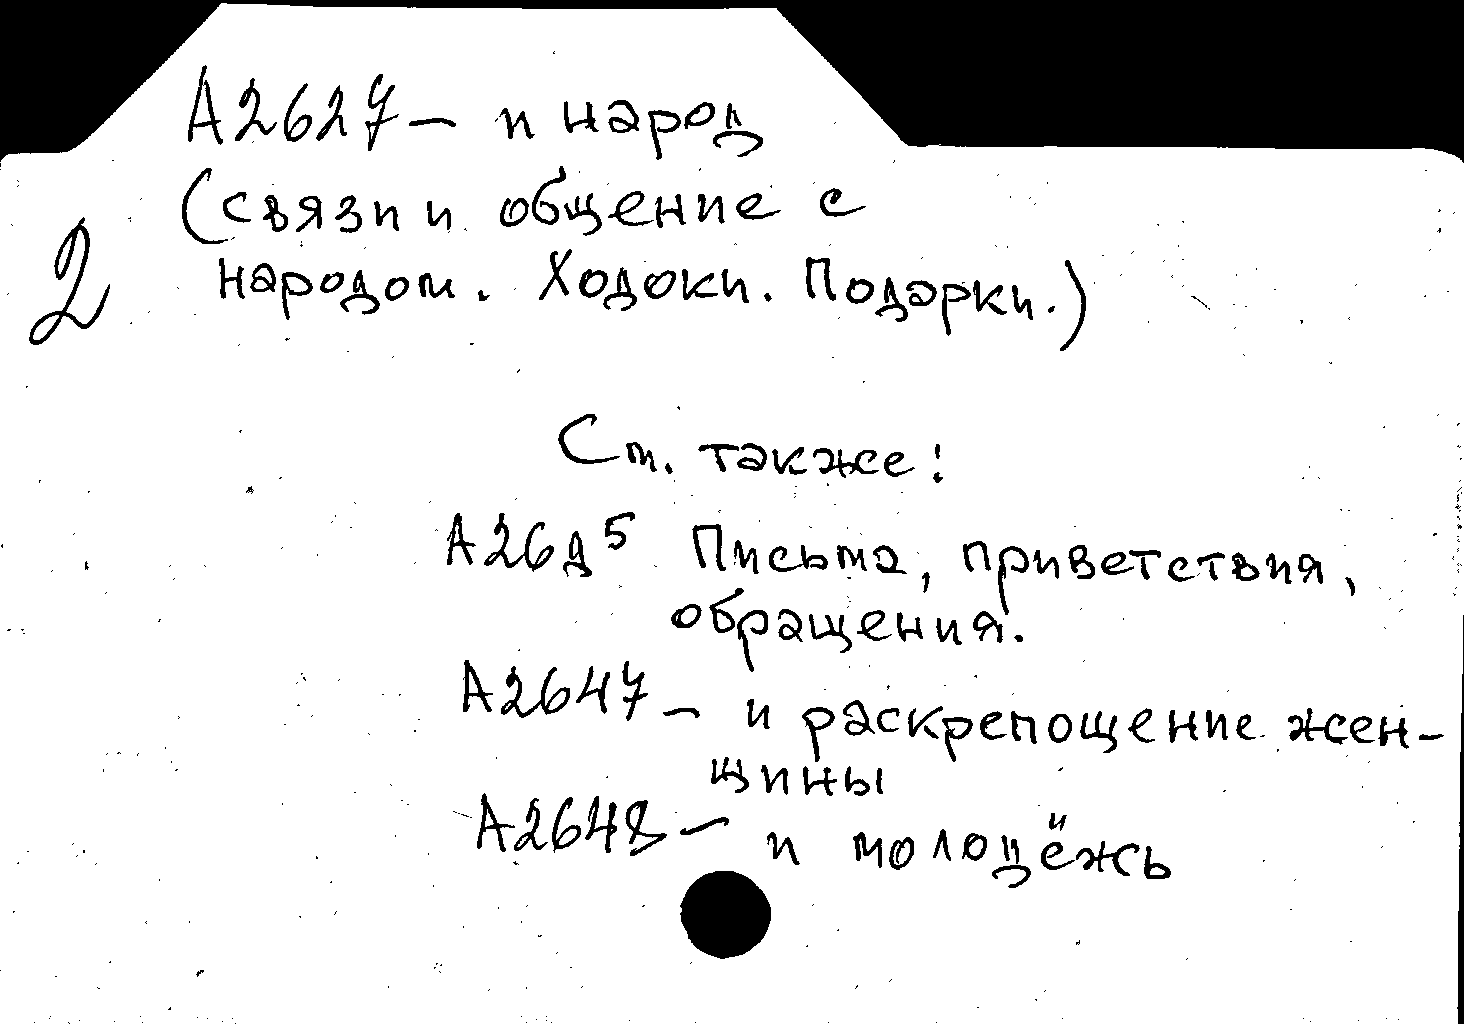 А2627 – и народ
(связи и общение с
2
народом. Ходоки. Подарки.)
См. также:
А26д5 Письма, приветствия,
обращения.
А2647 – и раскрепощение жен-
щины
А2648 – и молодёжь